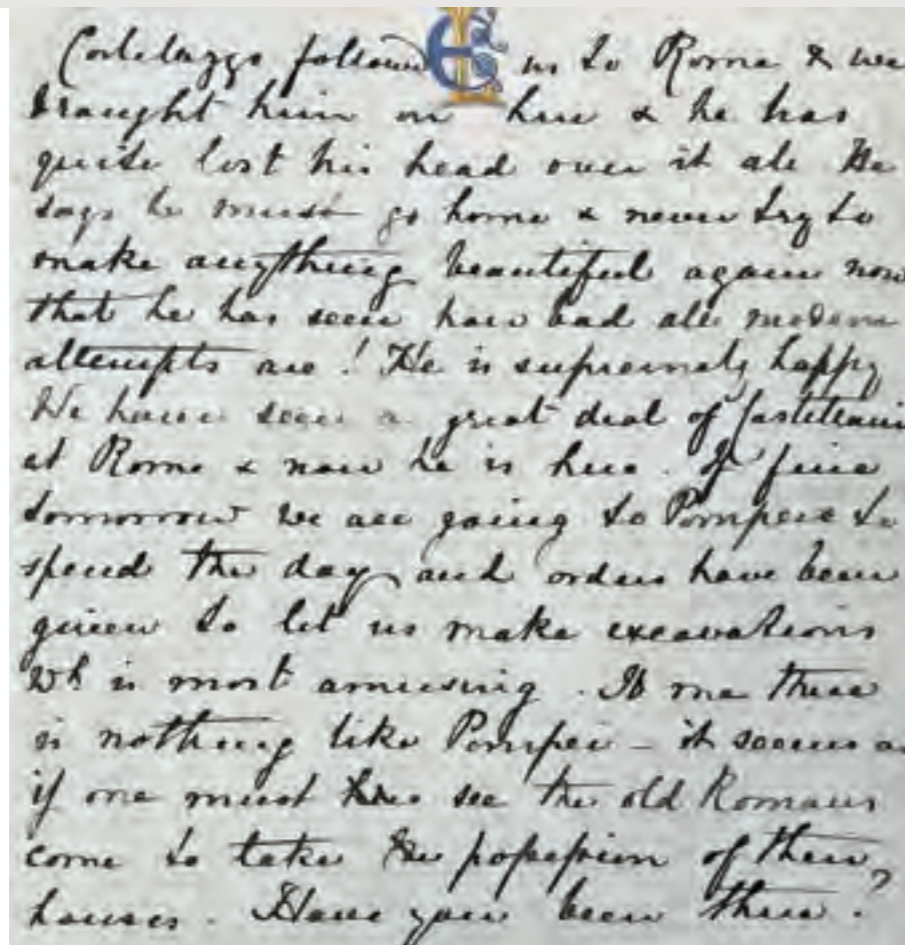 followed us to Rome & we
brought him on here & he has
quite lost his head over it all He
says he must go home & never try to
make anything beautiful again now
that he has seen how bad all modern
attempts are! He is supremely happy
We have seen a great deal of Castellani
at Rome & now he is here. If fine
tomorrow we are going to Pompeii to
spend the day and orders have been
given to let us make excavations
wh is most amusing. To me there
is nothing like Pompei - it seems as
if one must see the old Romans
come to take possession of their
houses. Have you been there?